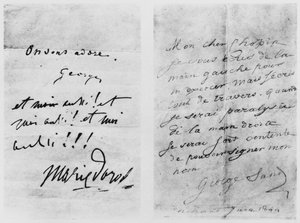 On vous adore.
George
et moi aussi! et
moi aussi! et moi
aussi!!!
Marie Dorval
Mon cher Chopin
je vous écris de la
main gauche pour
m'
mais
de travers. quand
je serai paralysée
de la main droite
je serai fort contente
de pouvoir signer mon
nom.
George Sand